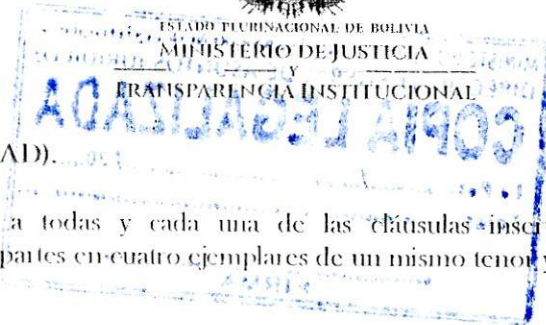 ESTADO PLURINACIONAL DE BOLIVIA
MINISTERIO DE JUSTICIA
Y
TRANSPARENCIA INSTITUCIONAL
COPIA LEGALIZADA
AD).
a todas y cada una de las cláusulas inser
partes en cuatro ejemplares de un mismo tenor y